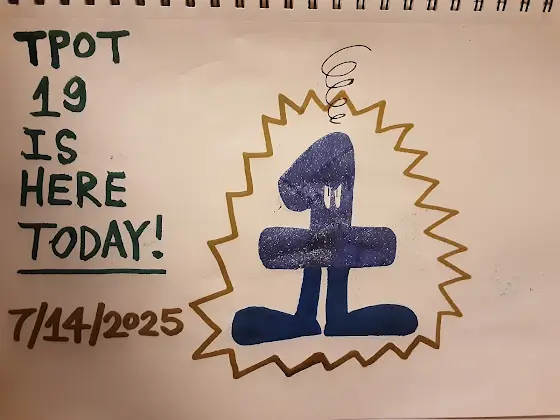 TPOT
19
IS
HERE
TODAY!
7/14/2025